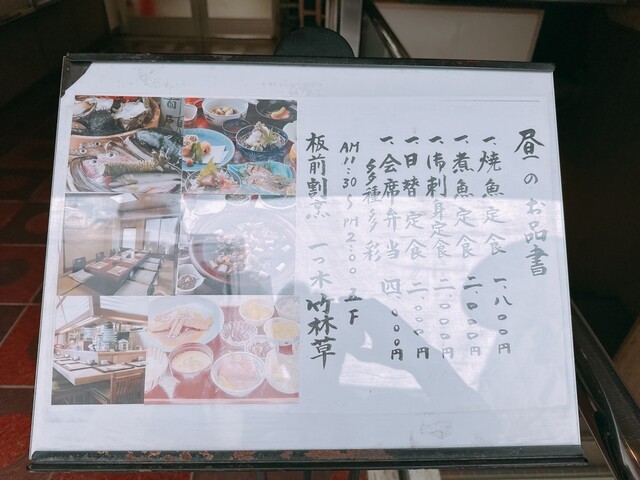 昼のお品書
一、焼魚定食 一、八〇〇円
一、煮魚定食 二、〇〇〇円
一、御刺身定食 二、〇〇〇円
一、日替定食 二、〇〇〇円
一、会席弁当 四、〇〇〇円
多種多彩
AM11:30〜PM2:00
板前割烹 一つ木 竹林草